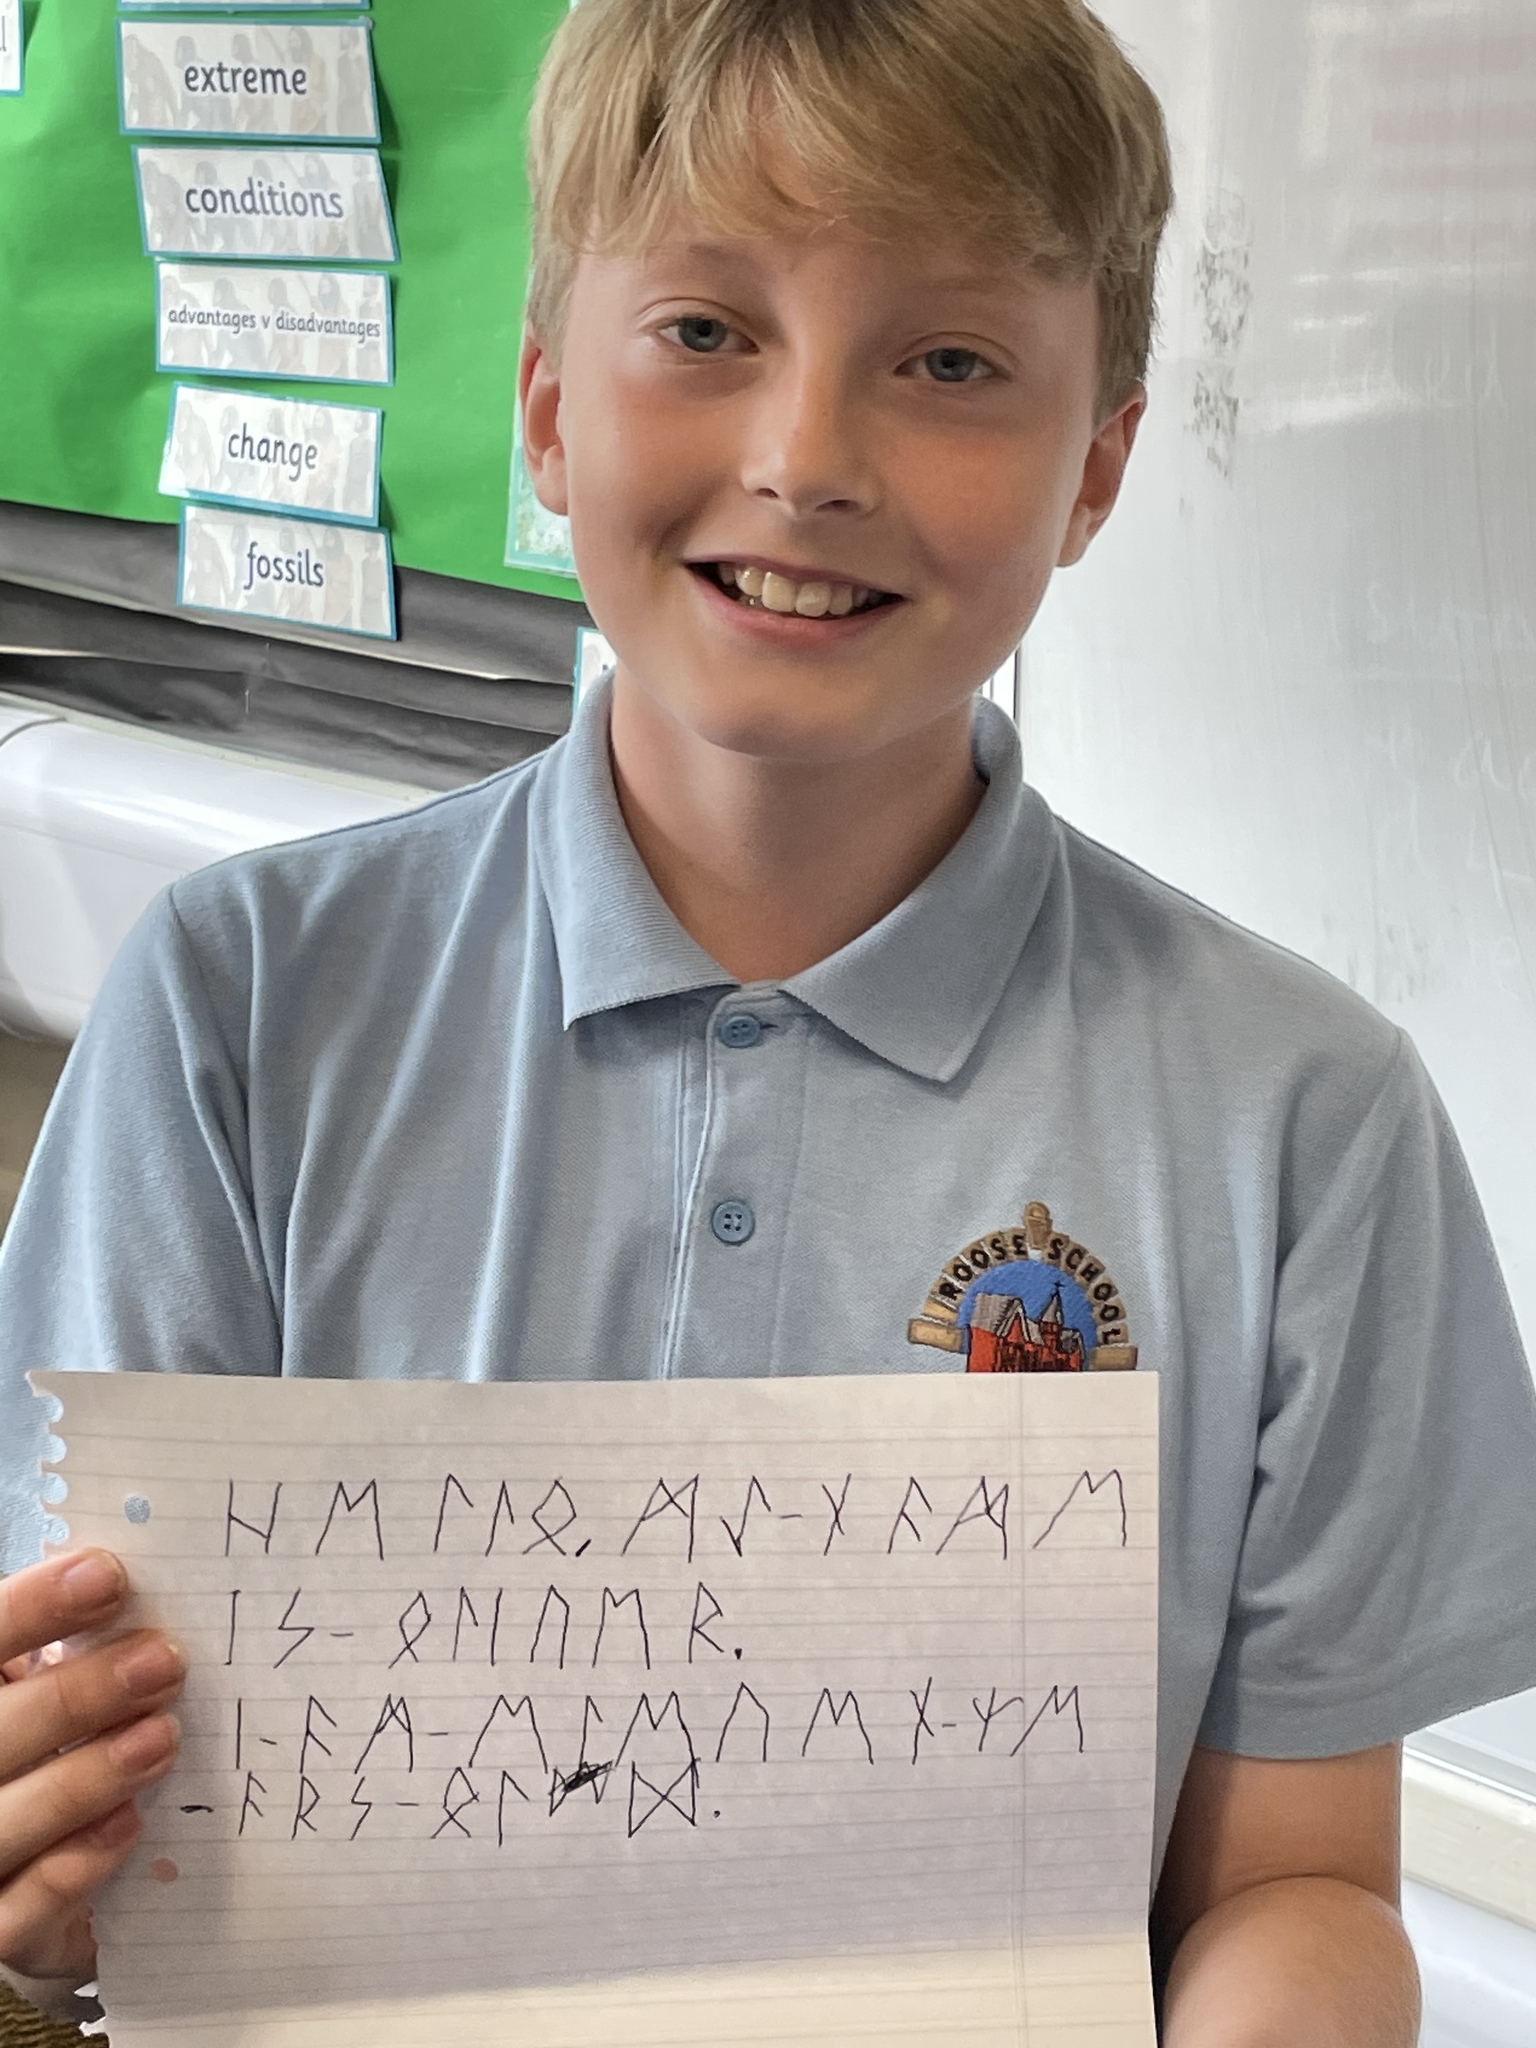 extreme
conditions
advantages v disadvantages
change
fossils
ROOSE SCHOOL
ᚺᛖᛚᛚᛟ, ᛗᛇ-ᚾᚨᛗᛖ
ᛁᛋ-ᛟᛚᛁᚢᛖᚱ.
ᛁ-ᚨᛗ-ᛖᛚᛖᚢᛖᚾ-ᛉᛖ
-ᚨᚱᛋ-ᛟᛚᛞ.